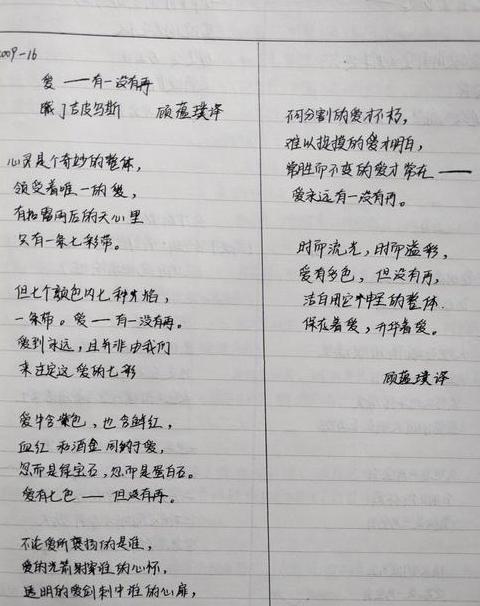 2009-16
爱 ——有一没有再
俄 丁吉皮乌斯 顾蕴璞译
心灵是个奇妙的整体，
领受着唯一的爱，
有如雷雨后的天心里
只有一条七彩带。
但七个颜色内七种光焰，
一条带。爱——有一没有再。
爱到永远，且并非由我们
来注定这爱的七彩
爱中含紫色，也含鲜红，
血红 和酒金 同约于爱，
忽而是绿宝石，忽而是蛋白石。
爱有七色 —— 但没有再。
不论爱所褒扬的是谁，
爱的光箭射穿谁的心怀，
透明的爱剑刺中谁的心扉，
不可分割的爱才不朽，
难以捉摸的爱才明白，
常胜而不变的爱才常在——
爱永远有一没有再。
时而流光，时而溢彩，
爱有多色，但没有再，
洁白用它的整体
保存着爱，升华着爱。
顾蕴璞译